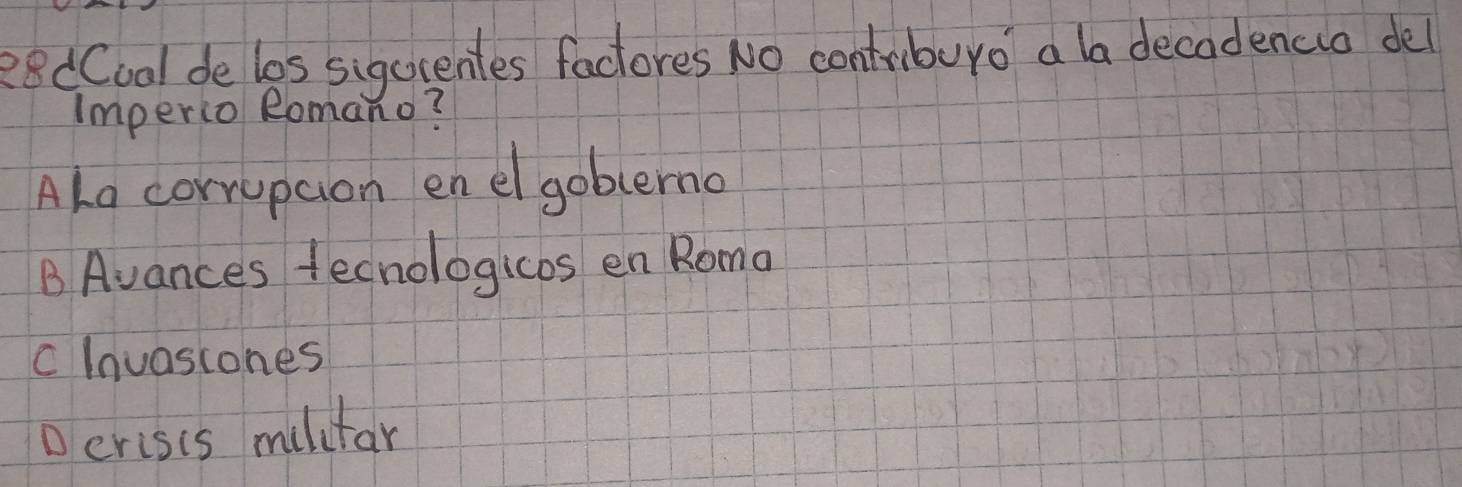 28¿Cual de los siguientes factores NO contribuyó a la decadencia del
Imperio Romano?
A La corrupcion en el gobierno
B Avances tecnologicos en Roma
C Invasiones
D crisis militar